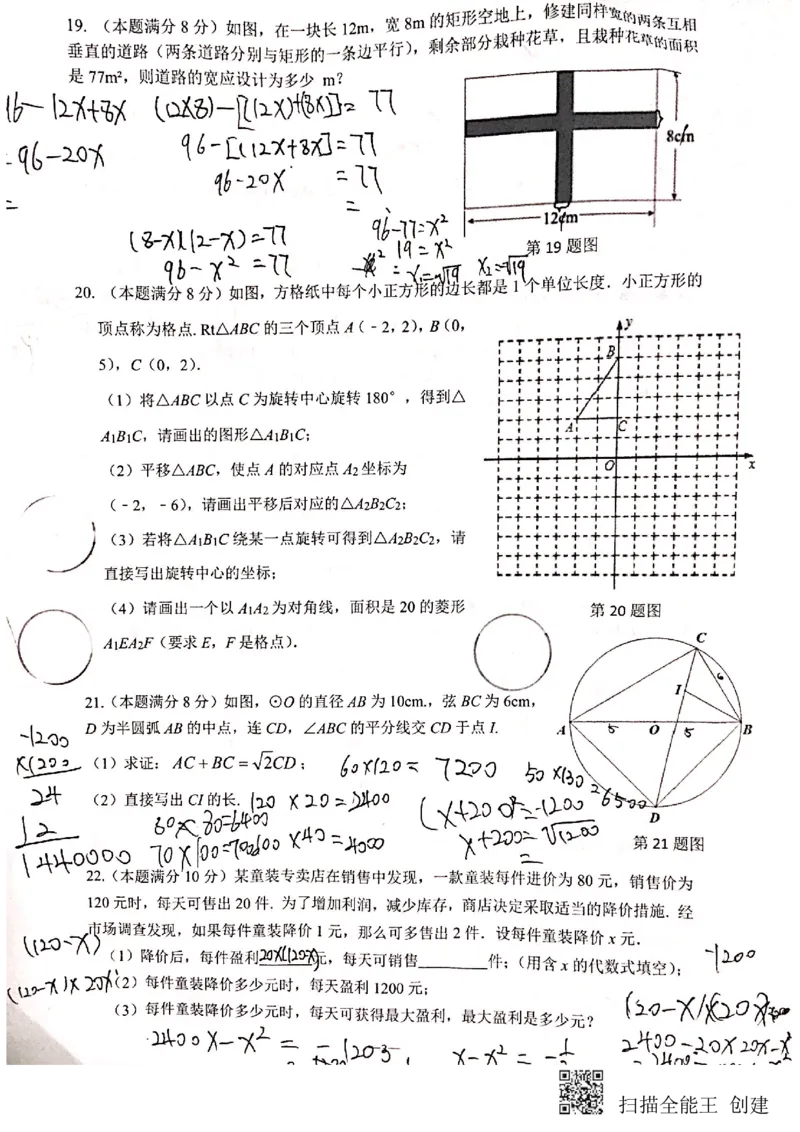 19. (本题满分 8 分) 如图，在一块长 12m，宽 8m 的矩形空地上，修建同样宽的两条互相
垂直的道路（两条道路分别与矩形的一条边平行），剩余部分栽种花草，且栽种花草的面积
是 77m²，则道路的宽应设计为多少 m？
16-12X+8X (12X8)-[(12X)+(8X)]=77
=96-20X 96-[(12X+8X]=77
96-20X =77
= =
8cm
12cm
第 19 题图
96-77=X²
(8-X)(12-X)=77 19=X²
96-X²=77 =X₁=√19 X₂=√19
20. （本题满分 8 分）如图，方格纸中每个小正方形的边长都是 1 个单位长度．小正方形的
顶点称为格点. Rt△ABC 的三个顶点 A（﹣2，2），B（0，
5），C（0，2）．
（1）将△ABC 以点 C 为旋转中心旋转 180°，得到△
A₁B₁C，请画出的图形△A₁B₁C；
（2）平移△ABC，使点 A 的对应点 A₂坐标为
（﹣2，﹣6），请画出平移后对应的△A₂B₂C₂；
（3）若将△A₁B₁C 绕某一点旋转可得到△A₂B₂C₂，请
直接写出旋转中心的坐标；
（4）请画出一个以 A₁A₂ 为对角线，面积是 20 的菱形
A₁EA₂F（要求 E，F 是格点）．
y
B
A C
O x
第 20 题图
21.（本题满分 8 分）如图，⊙O 的直径 AB 为 10cm.，弦 BC 为 6cm，
D 为半圆弧 AB 的中点，连 CD，∠ABC 的平分线交 CD 于点 I.
（1）求证：AC+BC=√2CD；
（2）直接写出 CI 的长.
C
I 6
A 5 O 5 B
D
第 21 题图
-1200
X1200
24
12
1440000
60X120=7200 50X130=6500
120X20=2400
80X80=6400
70X100=7000 X40=4000
(X+200)²=-1200
X+200=√1200
=
22.（本题满分 10 分）某童装专卖店在销售中发现，一款童装每件进价为 80 元，销售价为
120 元时，每天可售出 20 件．为了增加利润，减少库存，商店决定采取适当的降价措施．经
市场调查发现，如果每件童装降价 1 元，那么可多售出 2 件．设每件童装降价 x 元．
(120-X)
（1）降价后，每件盈利20X(120-X)元，每天可销售________件；（用含 x 的代数式填空）； -1200
(120-X)X20X
（2）每件童装降价多少元时，每天盈利 1200 元；
（3）每件童装降价多少元时，每天可获得最大盈利，最大盈利是多少元？
2400X-X²=
X-X²=
2400-20X20X-X²
扫描全能王 创建